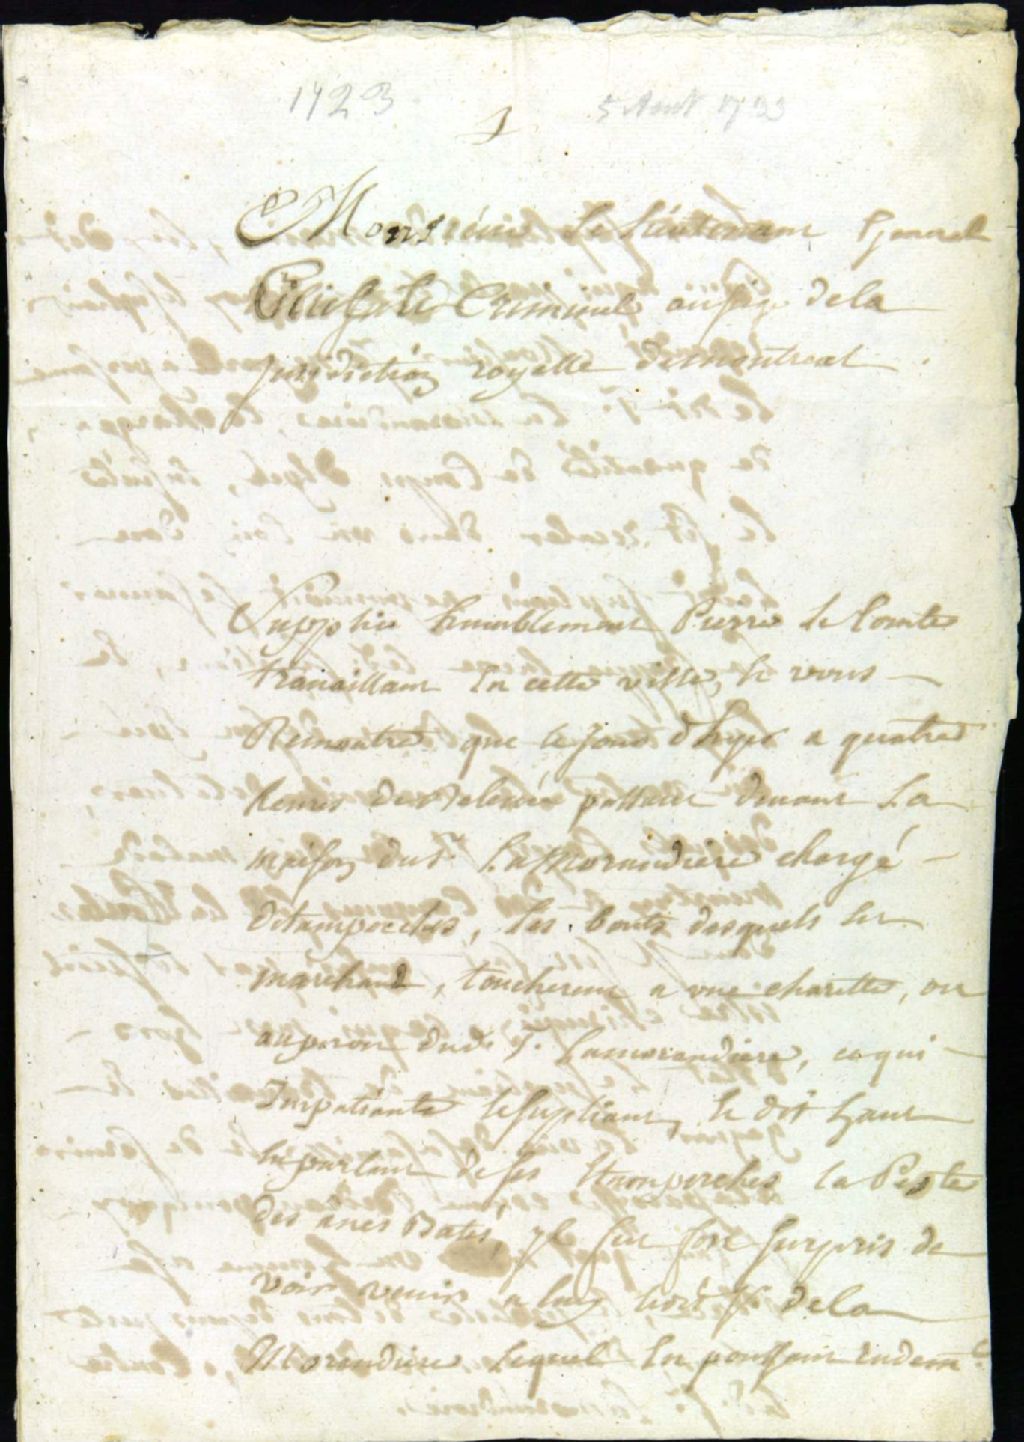 1723
5 Aout 1723
1
A Monsieur Le Lieutenant General
Civil et Criminel au siege de la
Jurisdiction royalle de montreal
Supplie humblement Pierre Le Comte
travaillant En cette ville, Et vous
Remontre que le jour d'hyer a quatre
heures de Relevée passant devant La
maison du Sr. Lamorandiere chargé
d'Etamperches, Les bouts desquels En
marchand, toucherent a une charette, ou
au peron dud. Sr. Lamorandiere, ce qui
Impatienta le supliant, Et dit haut
En parlant de ses Etamperches la Peste
des anes Batés, yl fut fort surpris de
voir venir a luy led. Sr. de la
Morandiere Lequel En poussant rudemt.